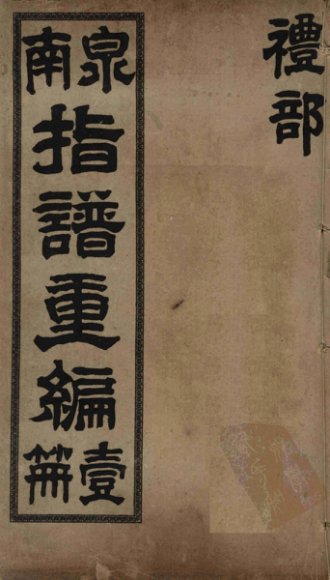 禮部
泉南指譜重編
壹冊